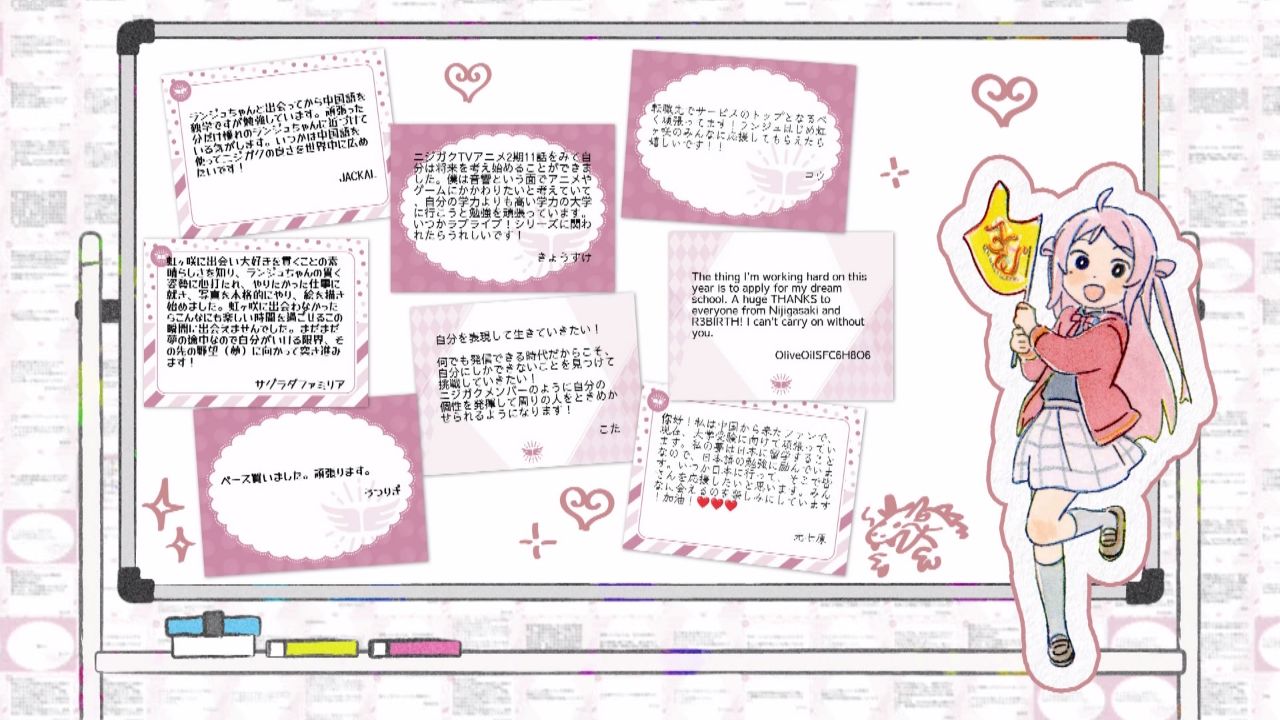 ランジュちゃんと出会ってから中国語を
独学ですが勉強しています。頑張った
分だけ憧れのランジュちゃんに近づけて
いる気がします。いつかは中国語を
使ってニジガクの良さを世界中に広め
たいです！
JACKAL
ニジガクTVアニメ2期11話をみて自
分は将来を考え始めることができま
した。僕は音響という面でアニメや
ゲームにかかわりたいと考えていて
、自分の学力よりも高い学力の大学
に行こうと勉強を頑張っています。
いつかラブライブ！シリーズに関わ
れたらうれしいです！
きょうすけ
転職先でサービスのトップとなるべ
く頑張ってます！ランジュはじめ虹
ヶ咲のみんなに応援してもらえたら
嬉しいです！！
コウ
虹ヶ咲に出会い大好きを貫くことの素
晴らしさを知り、ランジュちゃんの貫く
姿勢に心打たれ、やりたかった仕事に
就き、写真を本格的にやり、絵を描き
始めました。虹ヶ咲に出会わなかった
らこんなにも楽しい時間を過ごせるこの
瞬間に出会えませんでした。まだまだ
夢の途中なので自分がいける限界、そ
の先の野望（夢）に向かって突き進み
ます！
サグラダファミリア
自分を表現して生きていきたい！
何でも発信できる時代だからこそ、
自分にしかできないことを見つけて
挑戦していきたい！
ニジガクメンバーのように自分の
個性を発揮して周りの人をときめか
せられるようになります！
こた
The thing I'm working hard on this
year is to apply for my dream
school. A huge THANKS to
everyone from Nijigasaki and
R3BIRTH! I can't carry on without
you.
OliveOilSFC6H8O6
ベース買いました。頑張ります。
うつりぎ
你好！私は中国から来たファンで、
現在、大学受験に向けて頑張ってい
ます。私の夢は日本に留学すること
なので、日本語の勉強に励んでいま
す。いつか日本に行って、そこで皆
さんを応援したいと思います。みん
なに会えるのを楽しみにしています
！加油！❤❤❤